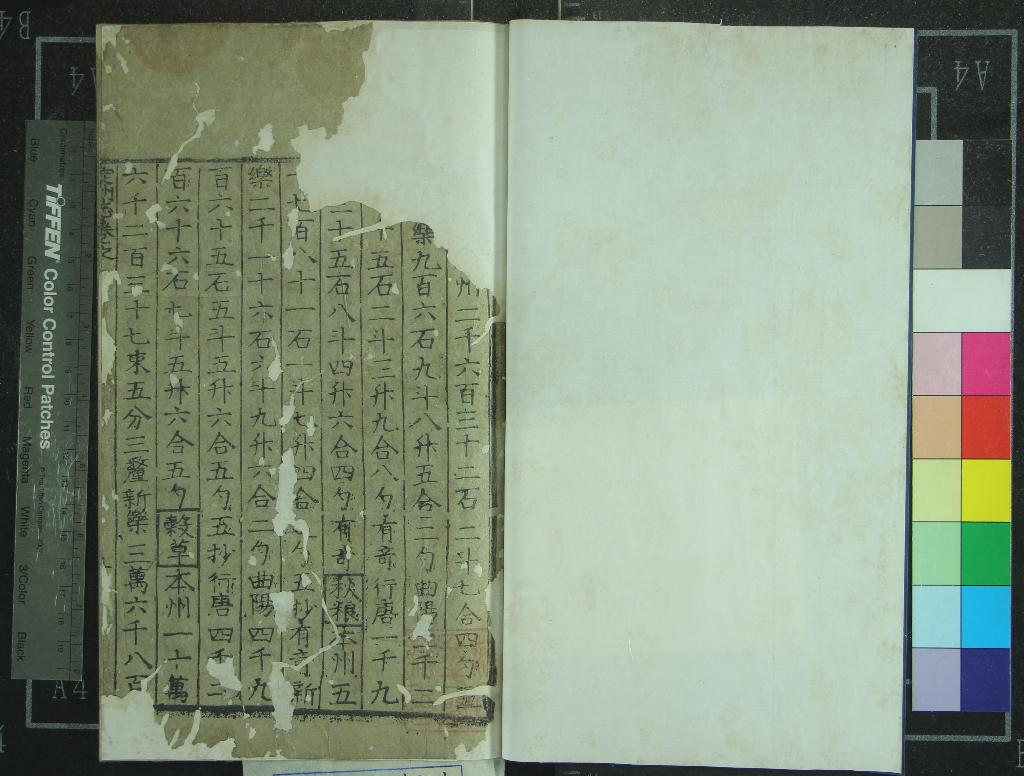 州二千六百三十二石二斗七合四勺
樂九百六石九斗八升五合二勺曲陽二千二
十五石二斗三升九合八勺有奇行唐一千九
二十五石八斗四升六合四勺有奇秋粮本州五
七百八十一石一斗七升四合 勺五抄有奇新
樂二千一十六石六斗九升六合二勺曲陽四千九
百六十五石五斗五升六合五勺五抄行唐四千二
百六十六石七斗五升六合五勺穀草本州一十萬
六千二百二十七束五分三釐新樂三萬六千八百
TIFFEN Color Control Patches
Centimetres
Blue Cyan Green Yellow Red Magenta White 3/Color Black
A4
A4
A4
B4